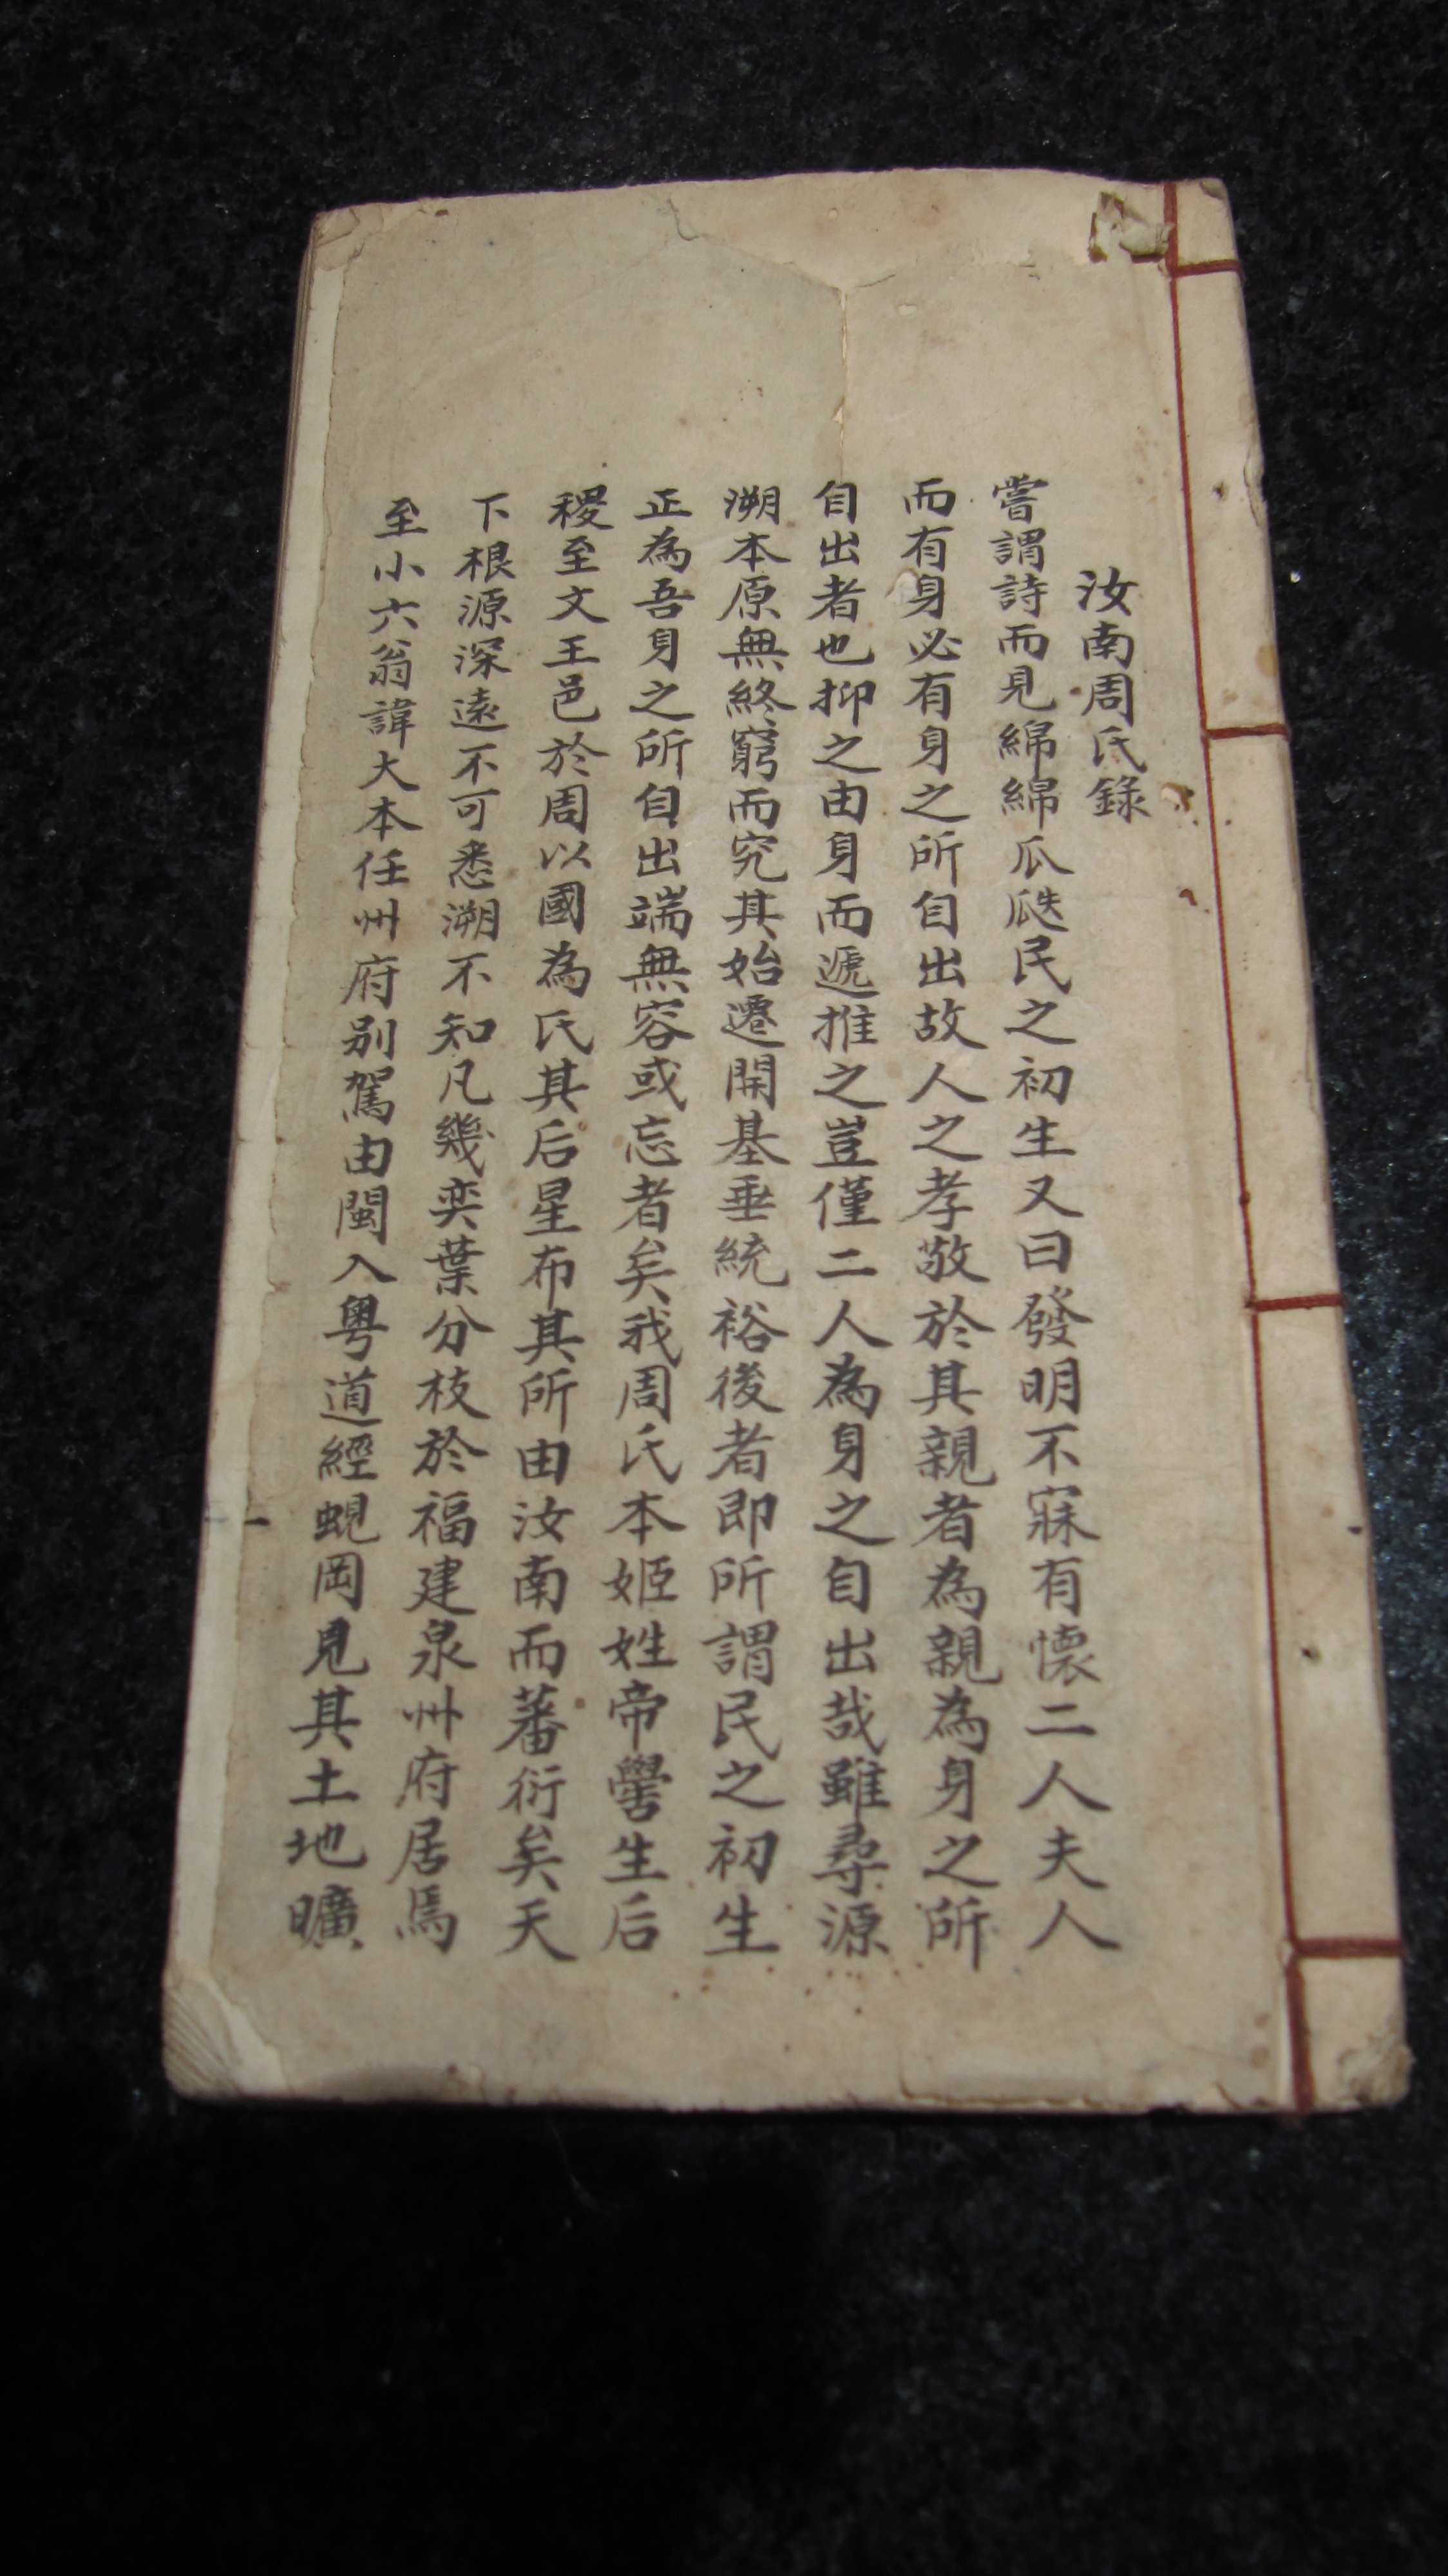 汝南周氏錄
嘗謂詩而見綿綿瓜瓞民之初生又曰發明不寐有懷二人夫人
而有身必有身之所自出故人之孝敬於其親者為親為身之所
自出者也抑之由身而遞推之豈僅二人為身之自出哉雖尋源
溯本原無終窮而究其始遷開基垂統裕後者即所謂民之初生
正為吾身之所自出端無容或忘者矣我周氏本姬姓帝嚳生后
稷至文王邑於周以國為氏其后星布其所由汝南而蕃衍矣天
下根源深遠不可悉溯不知凡幾奕葉分枝於福建泉州府居焉
至小六翁諱大本任州府別駕由閩入粵道經蜆岡見其土地曠